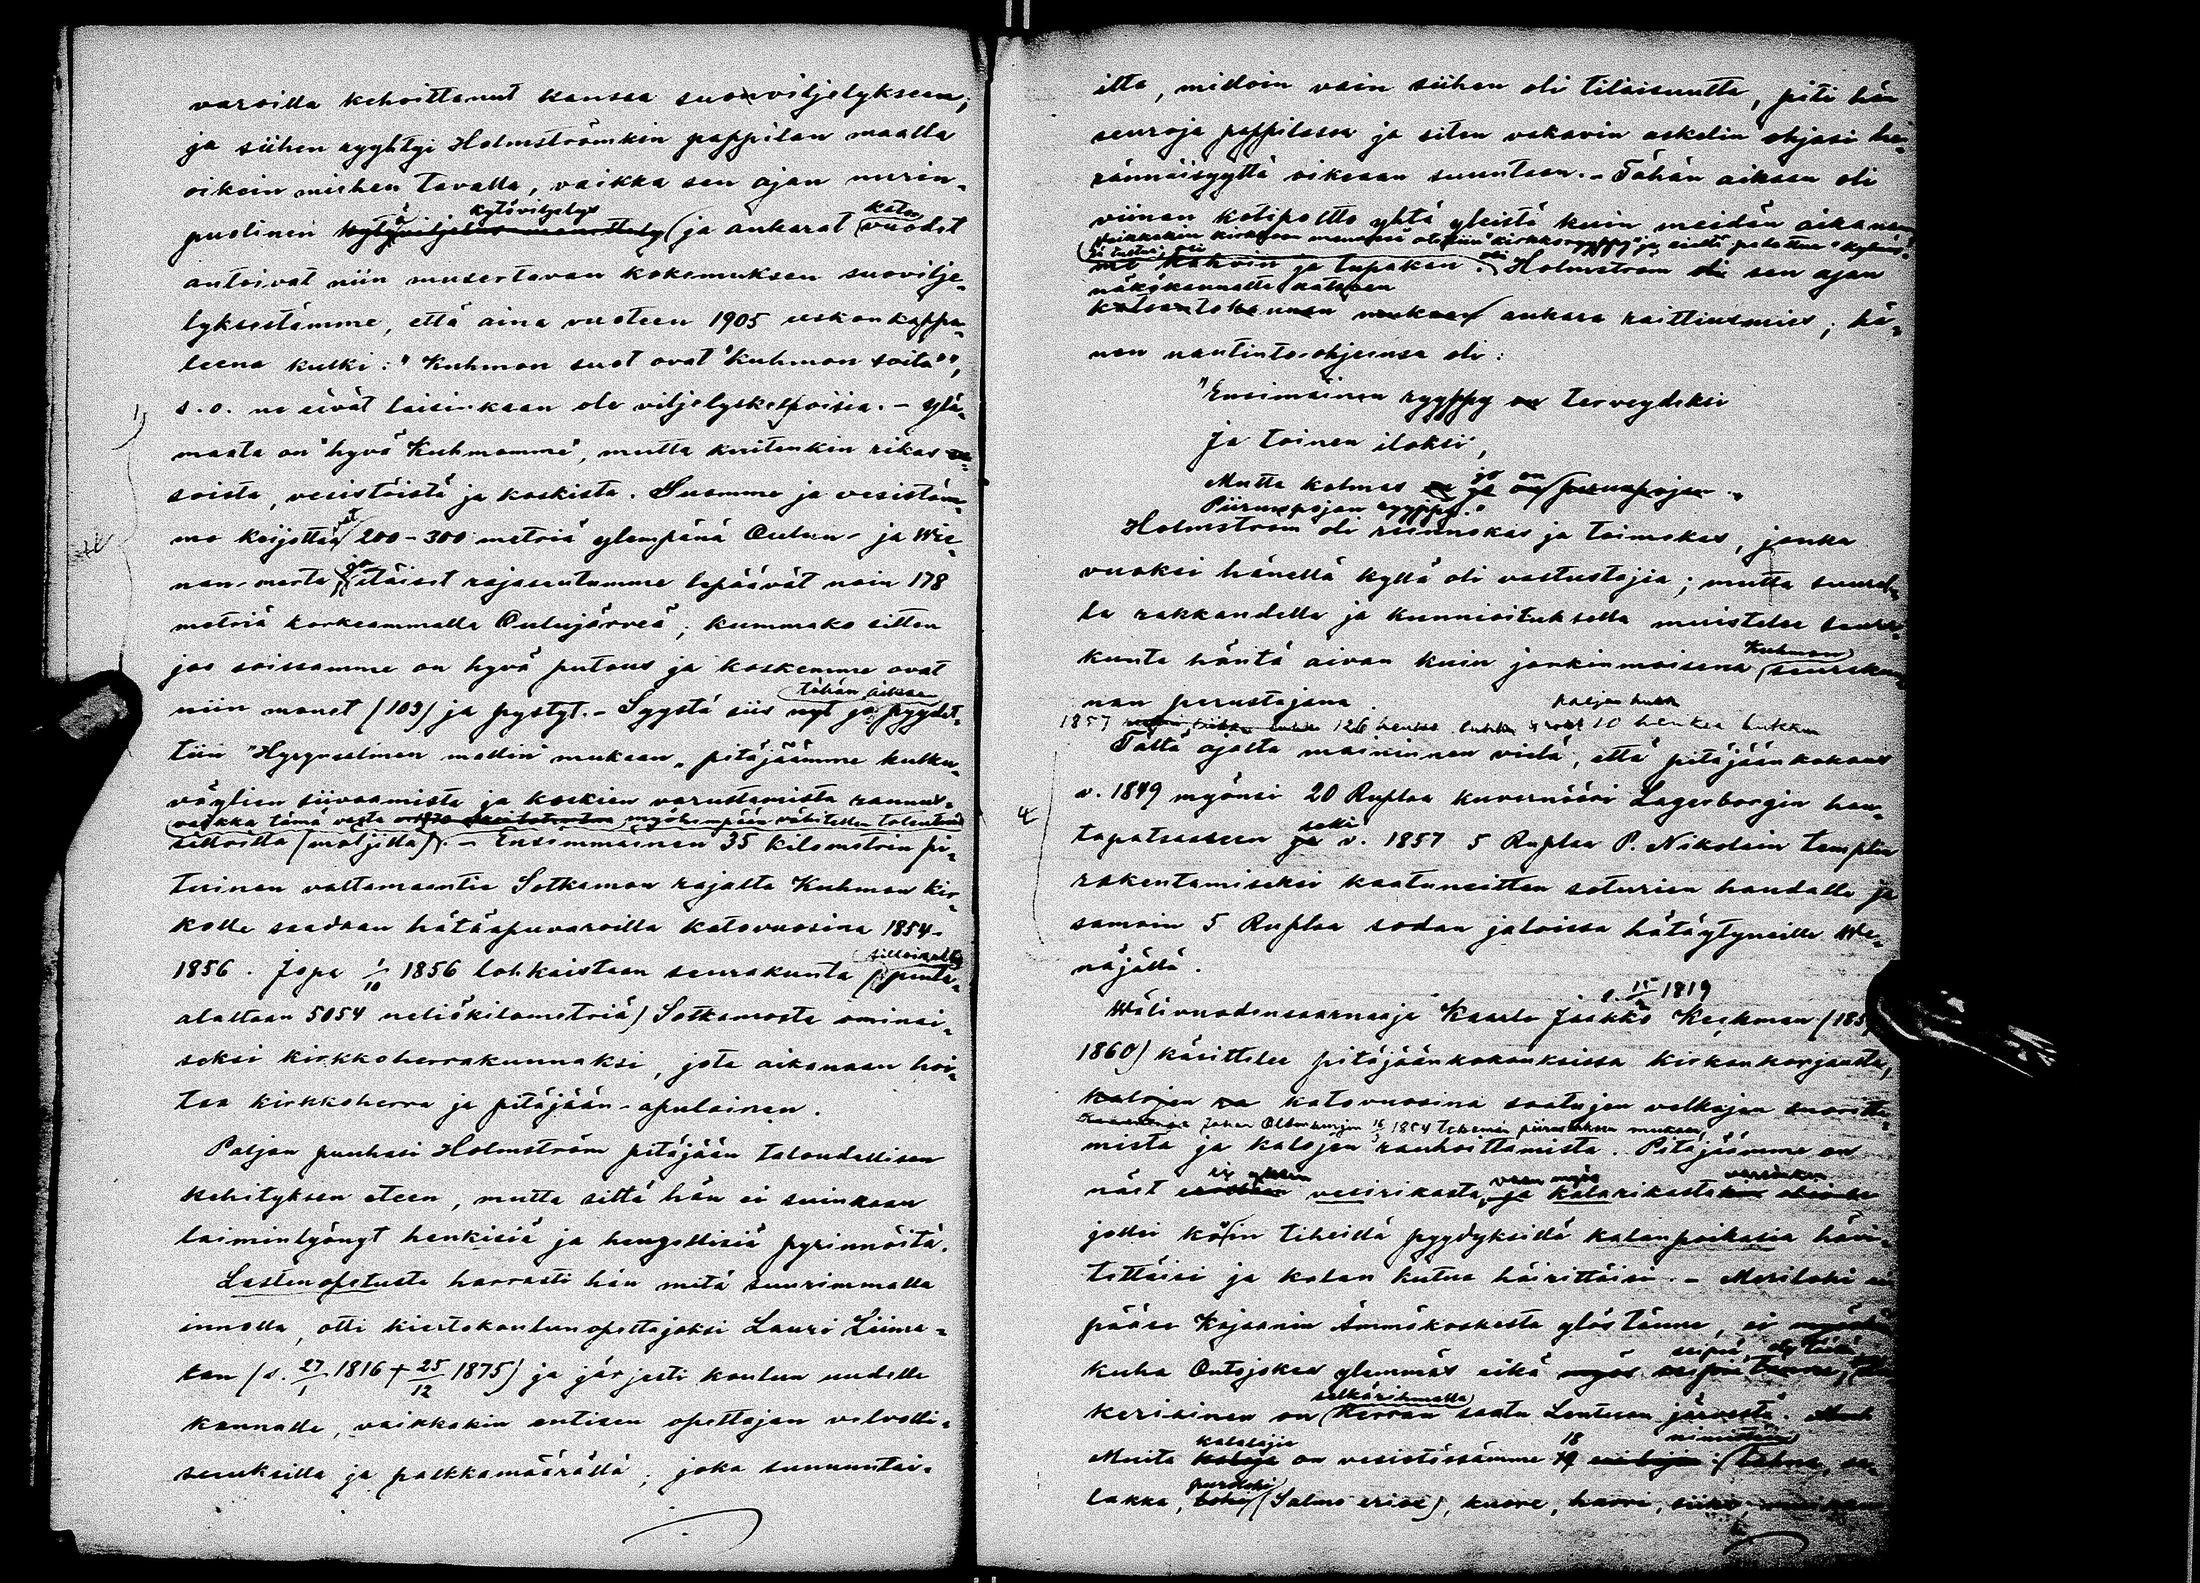 varoilla kehoittanut kansaa suonviljelykseen;
ja siihen ryyhtyi Holmströmkin pappilan maalla
oikein miehen tavalla, vaikka sen ajan nurin-
kytöviljelys kato
puolinen (ja ankarat vuodet
antoivat niin musertavan kokemuksen suovilje-
lyksestämme, että aina vuoteen 1905 uskonkappa-
leena kulki: "Kuhmon suot ovat "Kuhmon soita"",
s.o. ne eivät laisinkaan ole viljelyskelpoisia. - Ylä-
maata on "hyvä Kuhmomme", mutta kuitenkin rikas
soista, vesistöistä ja koskista. Suomme ja vesistöm-
vat
me keijottaa 200-300 metriä ylempänä Oulun- ja Wie-
ja
nan-merta itäiset rajaseutumme lepäävät noin 178
metriä korkeammalla Oulujärveä; kummako sitten
jos soissamme on hyvä putous ja koskemme ovat
tähän aikaan
niin monet (103) ja pystyt. - Syystä siis nyt jo pyydet-
tiin "Hyrynselmen mallin" mukaan pitäjäämme kulku-
väylien siivoamista ja koskien varustamista rannus-
vaikka tämä vasta myöhempään vähitellen toteutui
silloilla (möljillä). - Ensimmäinen 35 kilometrin pi-
tuinen valtamaantie Sotkamon rajalta Kuhmon kir-
kolle saadaan hätäapuvaroilla katovuosina 1854-
silloisella
1856. Jopa 1/10 1856 lohkaistaan seurakunta (pinta-
alaltaan 5054 neliökilometriä) Sotkamosta ominai-
seksi kirkkoherrakunnaksi, jota aikanaan hoi-
taa kirkkoherra ja pitäjään-apulainen.
Paljon puuhasi Holmström pitäjään taloudellisen
kehityksen eteen, mutta siltä hän ei suinkaan
laiminlyönyt henkisiä ja hengellisiä pyrinnöitä.
Lastenopetusta harrasti hän mitä suurimmalla
innolla, otti kiertokoulunopettajaksi Lauri Liima-
tan (s. 27/1 1816 + 25/12 1875) ja järjesti koulun uudelle
kannalle, vaikkakin entisen opettajan velvolli-
suuksilla ja palkkamäärällä; joka sunnuntai-
ilta, milloin vain siihen oli tilaisuutta, piti hän
seuroja pappilassa ja siten vakavin askelin ohjasi he-
rännäisyyttä oikeaan suuntaan. - Tähän aikaan oli
viinan kotipoltto yhtä yleistä kuin meidän aikanam-
me kahvin ja tupakan. Holmström oli sen ajan
näkökannalta katsoen
katsantokannan mukaan ankara raittiusmies; hä-
nen nautinto-ohjeensa oli:
"Ensimäinen ryyppy on terveydeksi
ja toinen iloksi,
jo on
Mutta kolmas
Piirunpojan ryyppy."
Holmström oli reimukas ja toimekas, jonka
vuoksi hänellä kyllä oli vastustajia; mutta suurel-
la rakkaudella ja kunnioituksella muistelee seura-
Kuhmon
kunta häntä aivan kuin jonkinmoisena seurakun-
nan perustajana.
1857 10 henkeä hukkui
Tältä ajalta mainninen vielä, että pitäjäänkokous
v. 1849 myönsi 20 Ruplaa kuvernööri Lagerborgin hau-
sekä
tapatsaaseen ja v. 1857 5 Ruplaa P. Nikolain templin
rakentamiseksi kaatuneitten soturien haudalle ja
samoin 5 Ruplaa sodan jaloissa hätäytyneille We-
näjällä.
s. 15/2 1819
Wälivuodensaarnaaja Kaarlo Jaakko Keckman (185
1860) käsittelee pitäjäänkokouksissa kirkonkorjausta,
kalojen katovuosina saatujen velkojen suoritta-
1854 tekemän piirustuksen mukaan,
mista ja kalojen rauhoittamista. Pitäjäämme on
ei yksin vaan myös varsinkin
näet vesirikasta, ja kalarikasta
jollei koin tiheillä pyydyksillä kalanpoikasia hävi-
tettäisi ja kalan kutua häirittäisi. - Merilohi ei
pääse Kajaanin Ämmäkoskesta ylös tänne, ei
kuha Ontojokea ylemmäs eikä myös
selkärihmalla
keriäinen on Kerran saatu Lentuan järvestä.
kalalajia 18 nimittäin
Muita kaloja on vesistössämme
purolohi
lakka, lohi (Salmo eriox), kuore, harri, siika